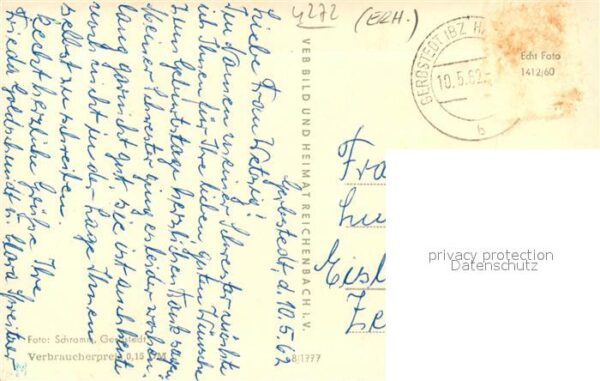 4272
(ERH.)
GERBSTEDT (BZ H
10.5.62.-
b
Echt Foto
1412/60
Gerbstedt, d. 10.5.62
Liebe Frau Wetzig!
Im Namen meiner Schwester möchte
ich Ihnen für Ihre lieben guten Wünsche
zum Geburtstage herzlichen Dank sagen.
Meiner Schwester ging es leider wochen-
lang gar nicht gut, sie ist auch heute
noch nicht in der Lage Ihnen
selbst zu schreiben.
Recht herzliche Grüße Ihre
Frieda Goldschmidt u. Klara
VEB BILD UND HEIMAT REICHENBACH i. V.
Fra
Eisl
privacy protection
Datenschutz
Foto: Schramm, Gerbstedt
Verbraucherpreis 0,15 DM
8/1777